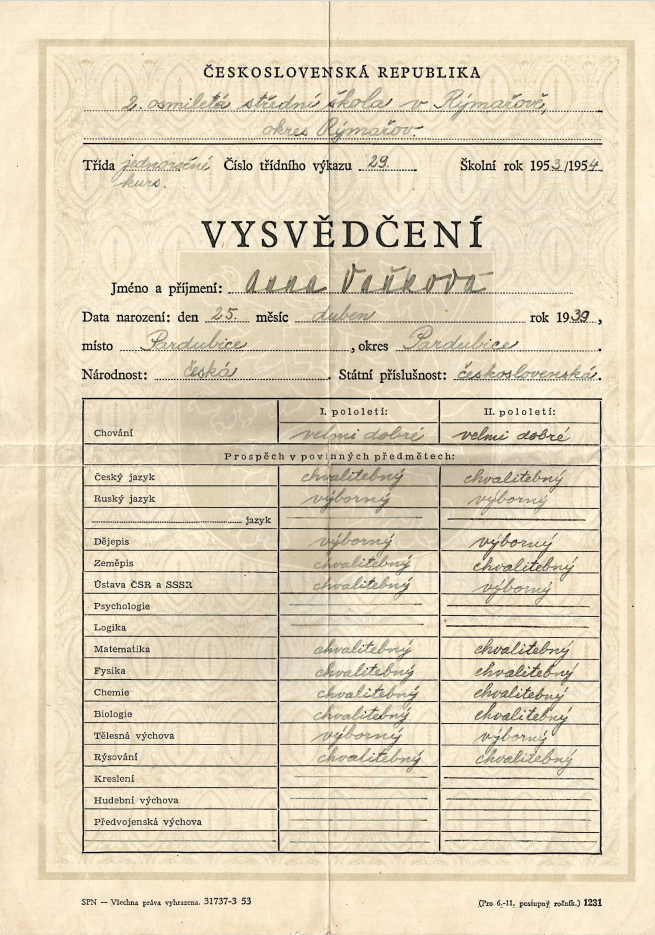 ČESKOSLOVENSKÁ REPUBLIKA
2. osmiletá střední škola v Rýmařově,
okres Rýmařov
Třída jednoroční Číslo třídního výkazu 29. Školní rok 1953/1954
kurs.
VYSVĚDČENÍ
Jméno a příjmení: Anna Vaňková
Data narození: den 25. měsíc duben rok 1939,
místo Pardubice, okres Pardubice.
Národnost: česká. Státní příslušnost: československá.
I. pololetí: II. pololetí:
Chování velmi dobré velmi dobré
Prospěch v povinných předmětech:
Český jazyk chvalitebný chvalitebný
Ruský jazyk výborný výborný
jazyk
Dějepis výborný výborný
Zeměpis chvalitebný chvalitebný
Ústava ČSR a SSSR chvalitebný výborný
Psychologie
Logika
Matematika chvalitebný chvalitebný
Fysika chvalitebný chvalitebný
Chemie chvalitebný chvalitebný
Biologie chvalitebný chvalitebný
Tělesná výchova výborný výborný
Rýsování chvalitebný chvalitebný
Kreslení
Hudební výchova
Předvojenská výchova
SPN — Všechna práva vyhrazena. 31737-3 53 (Pro 6.-11. postupný ročník.) 1231